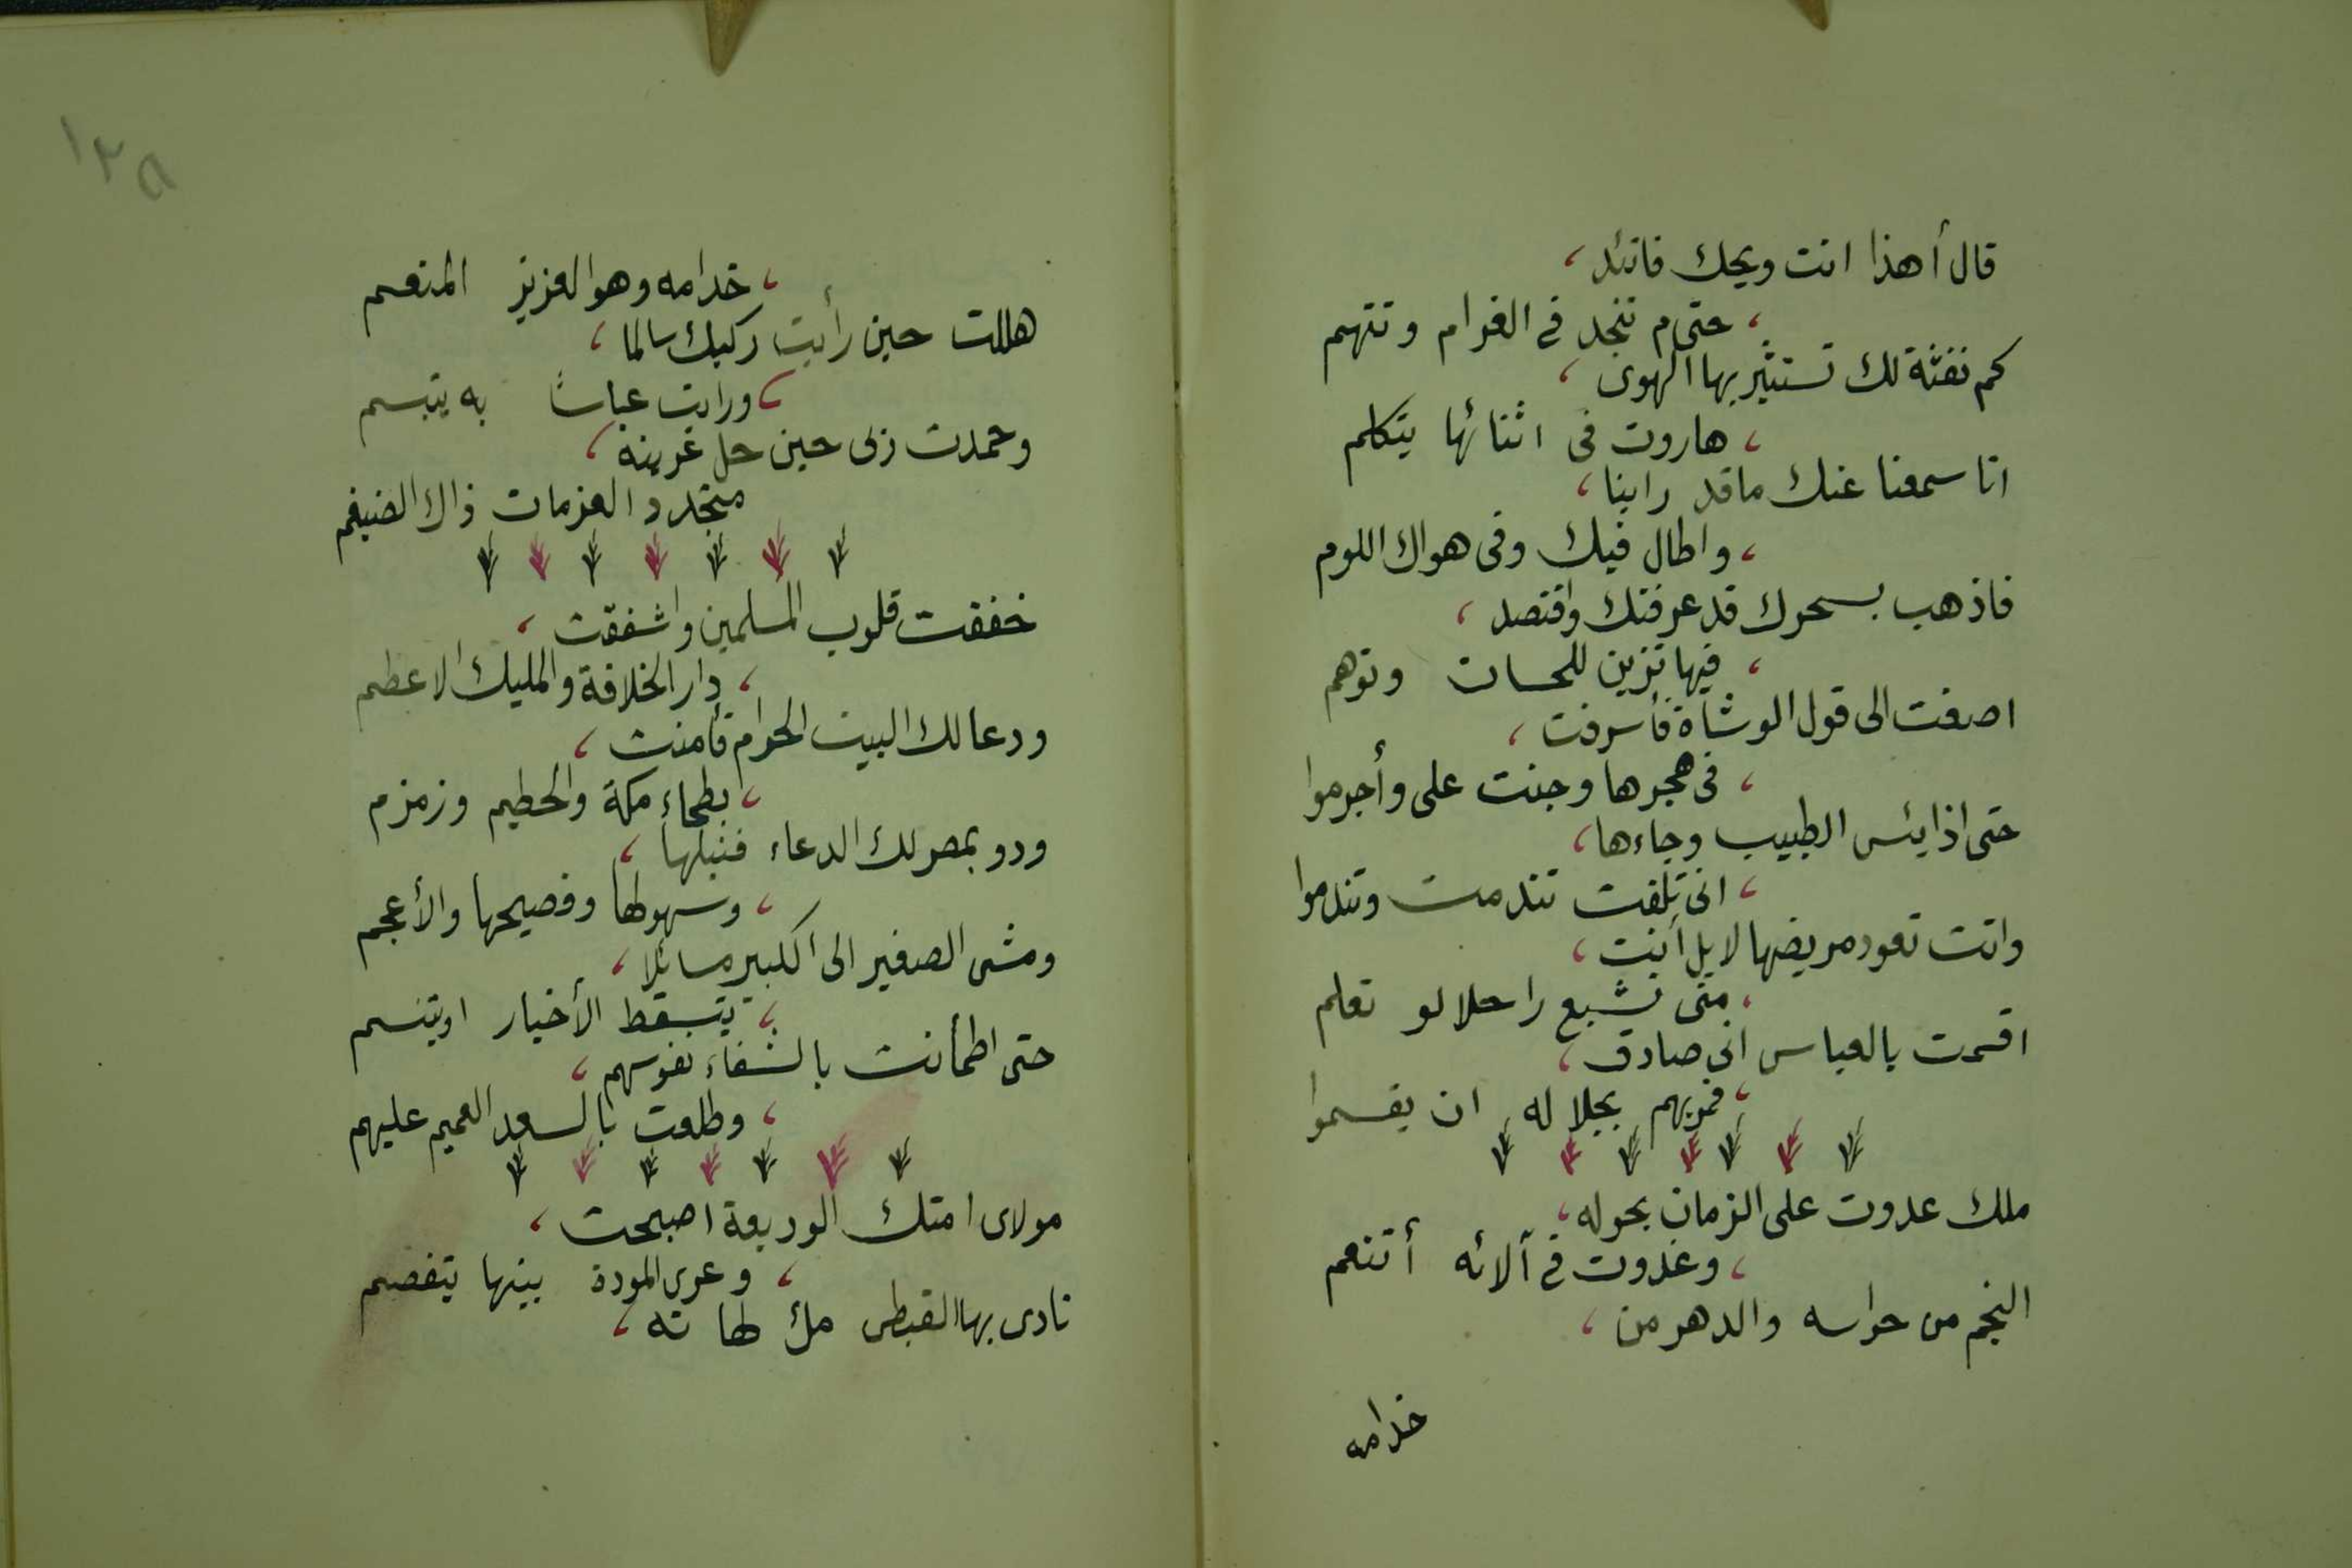 قال أهذا انت ويحك فاتئد،
، حتى م تنجد فى الغرام وتتهم
كم نفثة لك تستثير بها الهوى،
، هاروت فى اثنائها يتكلم
انا سمعنا عنك ما قد رابنا،
، واطال فيك وفى هواك اللوم
فاذهب بسحرك قد عرفتك واقتصد،
، فيها تزين للحسان وتوهم
اصغت الى قول الوشاة فأسرفت،
، فى هجرها وجنت على وأجرموا
حتى اذا يئس الطبيب وجاءها،
، انى تلفت تندمت وتندموا
واتت تعود مريضها لا بل أتت،
، منى تشيع راحلا لو تعلم
اقسمت بالعباس انى صادق،
، فمريهم بجلاله ان يقسموا
ملك عدوت على الزمان بحوله،
، وغدوت فى آلائه أتنعم
النجم من حراسه والدهر من،
خدامه
١٢٨
، خدامه وهو العزيز المنعم
هللت حين رأيت ركبك سالما،
، ورايت عباسًا به يتبسم
وحمدت ربى حين حل عرينه،
متجدد العزمات ذاك الضيغم
خفقت قلوب المسلمين واشفقت،
، دار الخلافة والمليك الاعظم
ودعا لك البيت الحرام فأمنت،
، بطحاء مكة والحطيم وزمزم
ودوى بمصر لك الدعاء فنيلها،
، وسهولها وفصيحها والأعجم
ومشى الصغير الى الكبير مسائلا،
، يتسقط الأخبار او يتنسم
حتى اطمأنت بالشفاء نفوسهم،
، وطلعت بالسعد العميم عليهم
مولاى امتك الوديعة اصبحت،
، وعرى المودة بينها يتفصم
نادى بها القبطى ملء لهاته،